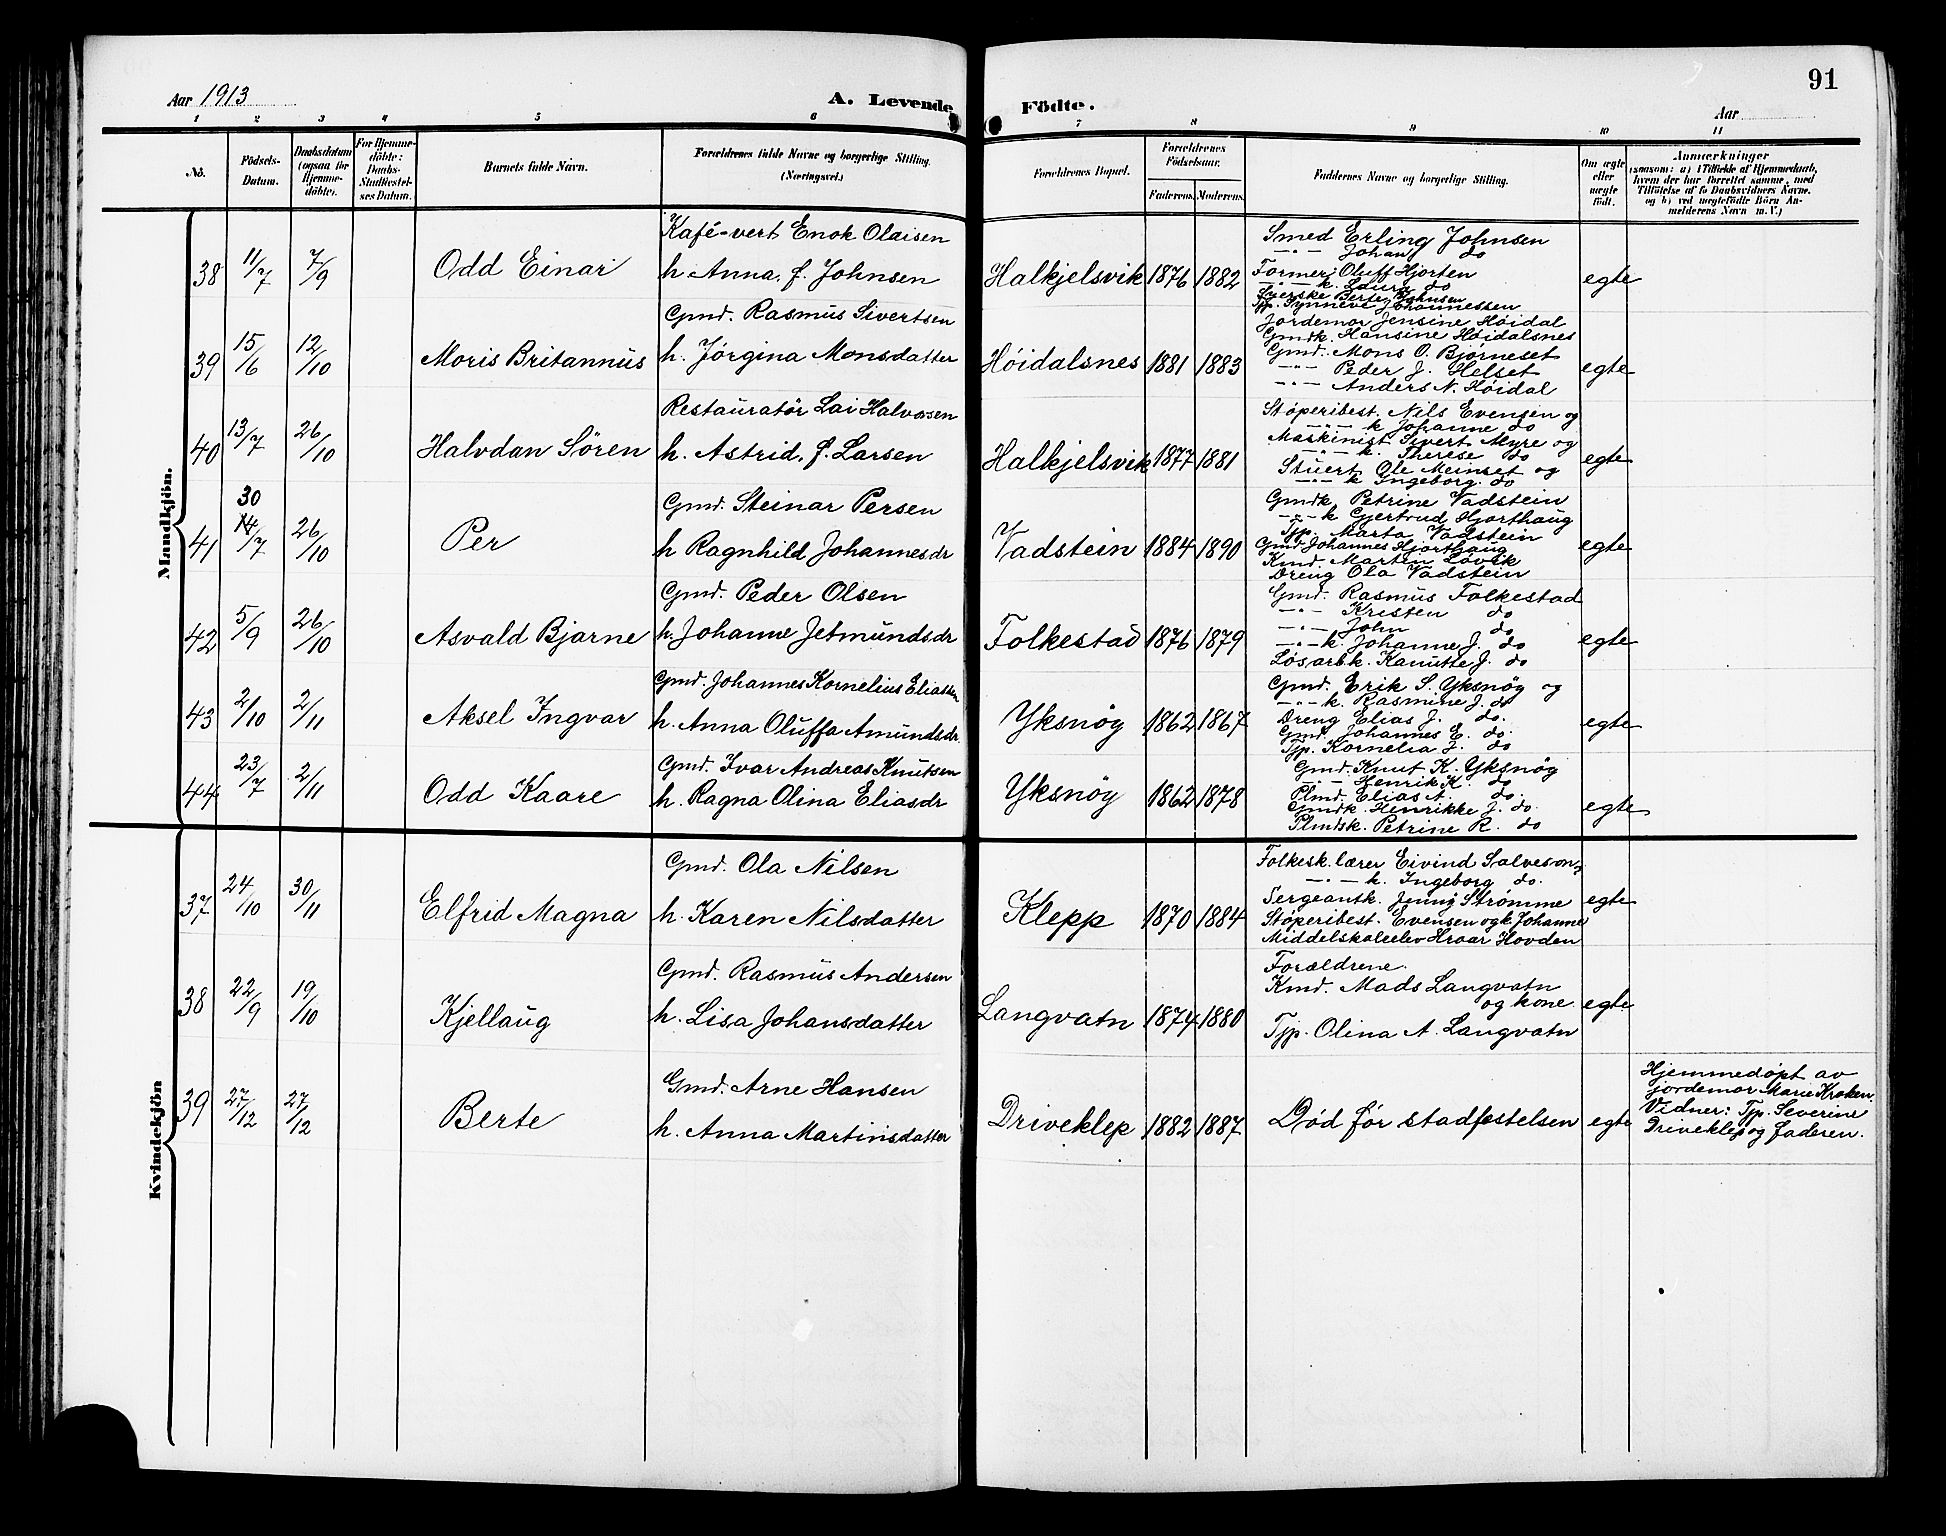 91
Aar 1913
A. Levende Födte.
Aar
1 2 3 4 5 6 7 8 9 10 11
No.
Födsels-Datum.
Daabsdatum (ogsaa for Hjemmedöbte).
For Hjemmedöbte: Daabs-Stadfæstelses Datum.
Barnets fulde Navn.
Forældrenes fulde Navne og borgerlige Stilling. (Næringsvei.)
Forældrenes Bopæl.
Forældrenes Födselsaar.
Faderens. Moderens.
Faddernes Navne og borgerlige Stilling.
Om ægte eller uægte födt.
Anmærkninger
(saasom: a) i Tilfælde af Hjemmedaab, hvem der har forrettet samme, med Tilföielse af to Daabsvidners Navne, og b) ved uægtefödte Börn Anmelderens Navn m. V.)
Mandkjön.
38 11/7 7/9 Odd Einar
Kafé-vert Enok Olaisen
h. Anna, f. Johnsen
Halkjelsvik 1876 1882
Smed Erling Johnsen
—"— Johan do
Former Oluff Hjorten
—"— k. Laura do
Sierske Berte Johnsen
Tjp. Synneve Johannessen
egte
39 15/6 12/10 Moris Britannus
Gmd. Rasmus Sivertsen
h. Jørgina Monsdatter
Höidalsnes 1881 1883
Jordemor Jensine Höidal
Gmdk. Hansine Höidalsnes
Gmd. Mons O. Bjørneset
—"— Peder J. Helset
—"— Anders N. Höidal
egte
40 13/7 26/10 Halvdan Sören
Restauratör Lai Halvorsen
h. Astrid, f. Larsen
Halkjelsvik 1877 1881
Støperibest. Nils Evensen og
—"— k Johanne do
Maskinist Sivert Myre og
—"— k. Therese do
Stuert Ole Meinset og
—"— k Ingeborg do
egte
41 30 14/7 26/10 Per
Gmd. Steinar Persen
h Ragnhild Johannesdr
Vadstein 1884 1890
Gmdk Petrine Vadstein
—"— k Gjertrud Hjorthaug
Tjp. Marta Vadstein
Gmd Johannes Hjorthaug
Kmd. Marten Løvik
Dreng Ola Vadstein
egte
42 5/9 26/10 Asvald Bjarne
Gmd. Peder Olsen
h. Johanne Jetmundsdr
Folkestad 1876 1879
Gmd. Rasmus Folkestad
—"— Kristen do
—"— John do
—"— k. Johanne J. do
Løsarbk. Kanutte J. do
egte
43 2/10 2/11 Aksel Ingvar
Gmd. Johannes Kornelius Eliassen
h. Anna Oluffa Amundsdr.
Yksnøy 1862 1867
Gmd. Erik S. Yksnøy og
—"— k. Rasmine J. do
Dreng Elias J. do.
Gmd. Johannes E. do.
Tjp. Kornelia J. do
egte
44 23/7 2/11 Odd Kaare
Gmd. Ivar Andreas Knutsen
h. Ragna Olina Eliasdr
Yksnøy 1862 1878
Gmd. Knut K. Yksnøy
—"— Henrik K. do
Plmd. Elias A. do.
Gmdk. Henrikke J. do.
Plmdsk. Petrine R. do
egte
Kvindekjön
37 24/10 30/11 Elfrid Magna
Gmd. Ola Nilsen
h. Karen Nilsdatter
Klepp 1870 1884
Folkesk. lærer Eivind Salveson,
—"— k. Ingeborg do.
Sergeantk. Jenny Strømme
Støperibest. Evensen og k. Johanne
Middelskoleelev Hroar Hovden
egte
38 22/9 19/10 Kjellaug
Gmd. Rasmus Andersen
h. Lisa Johansdatter
Langvatn 1874 1880
Forældrene.
Kmd. Mads Langvatn
og kone
Tjp. Olina A. Langvatn
egte
39 27/12 27/12 Berte
Gmd. Arne Hansen
h. Anna Martinsdatter
Driveklep 1882 1887
Död før stadfestelsen
egte
Hjemmedøpt av
jordemor Marie Kroken.
Vidner: Tjp. Severine
Driveklep og faderen.